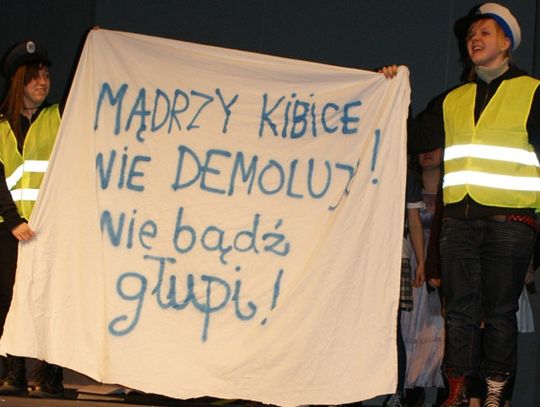 MĄDRZY KIBICE
NIE DEMOLUJ!
nie bądź
głupi!